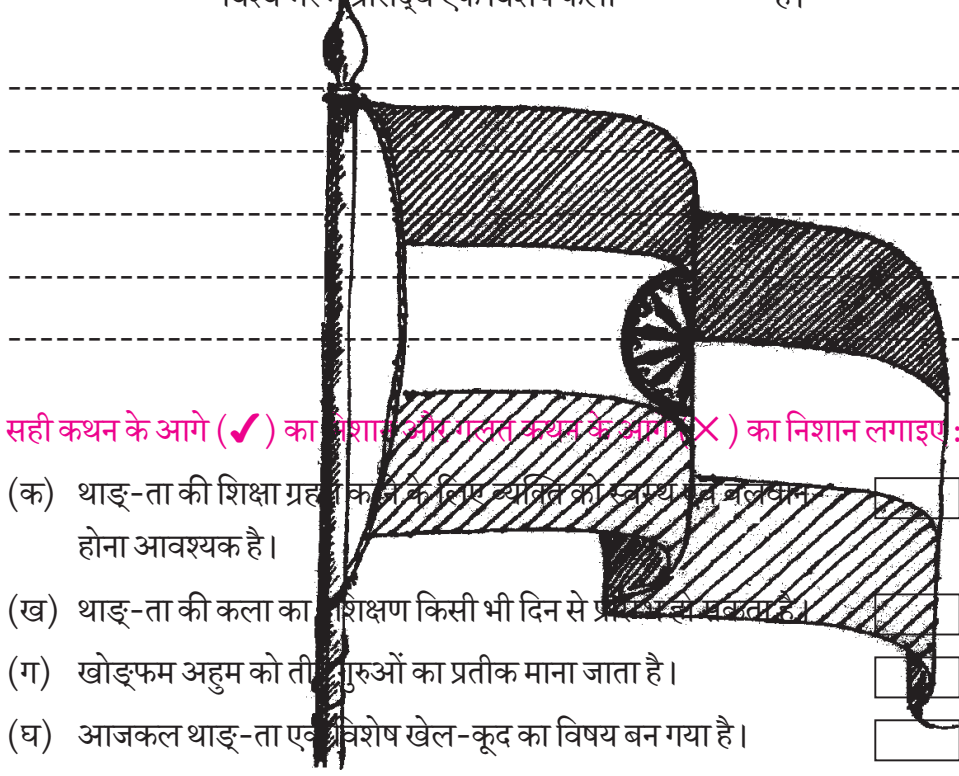 सही कथन के आगे (✔) का निशान और गलत कथन के आगे (✕) का निशान लगाइए :
(क) थाङ्-ता की शिक्षा ग्रहण करने के लिए व्यक्ति को स्वस्थ एवं बलवान
होना आवश्यक है।
(ख) थाङ्-ता की कला का प्रशिक्षण किसी भी दिन से प्रारम्भ हो सकता है।
(ग) खोङ्फम अहुम को तीन गुरुओं का प्रतीक माना जाता है।
(घ) आजकल थाङ्-ता एक विशेष खेल-कूद का विषय बन गया है।